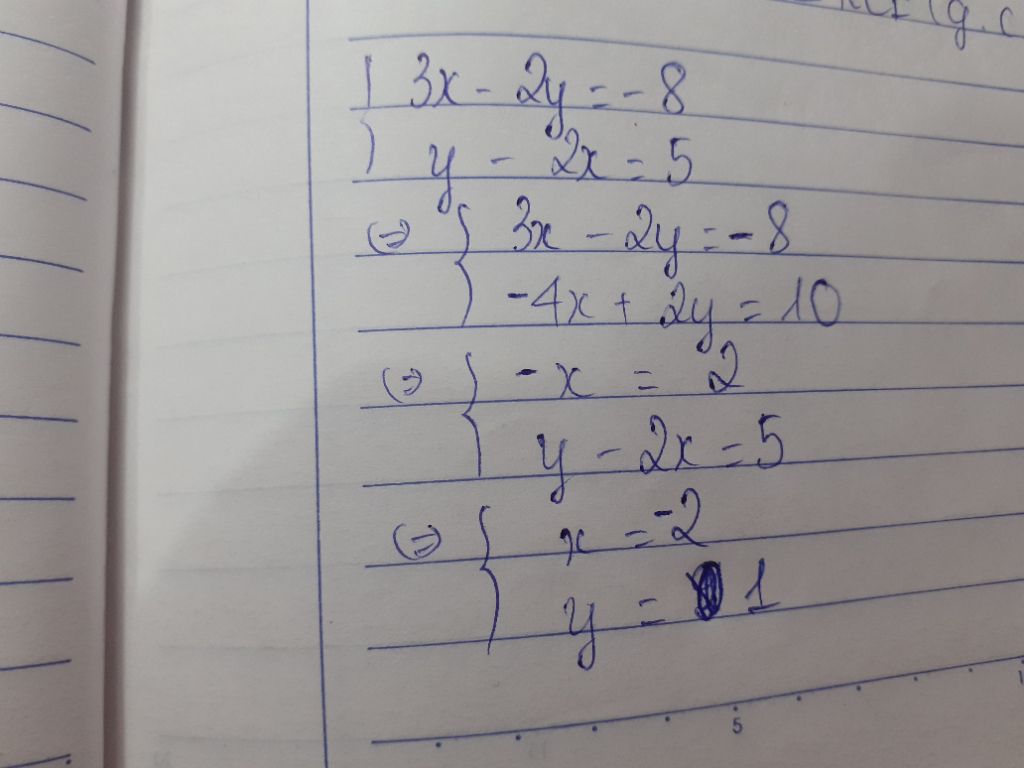 { 3x - 2y = -8
y - 2x = 5
⇔ { 3x - 2y = -8
-4x + 2y = 10
⇔ { -x = 2
y - 2x = 5
⇔ { x = -2
y = 1
5